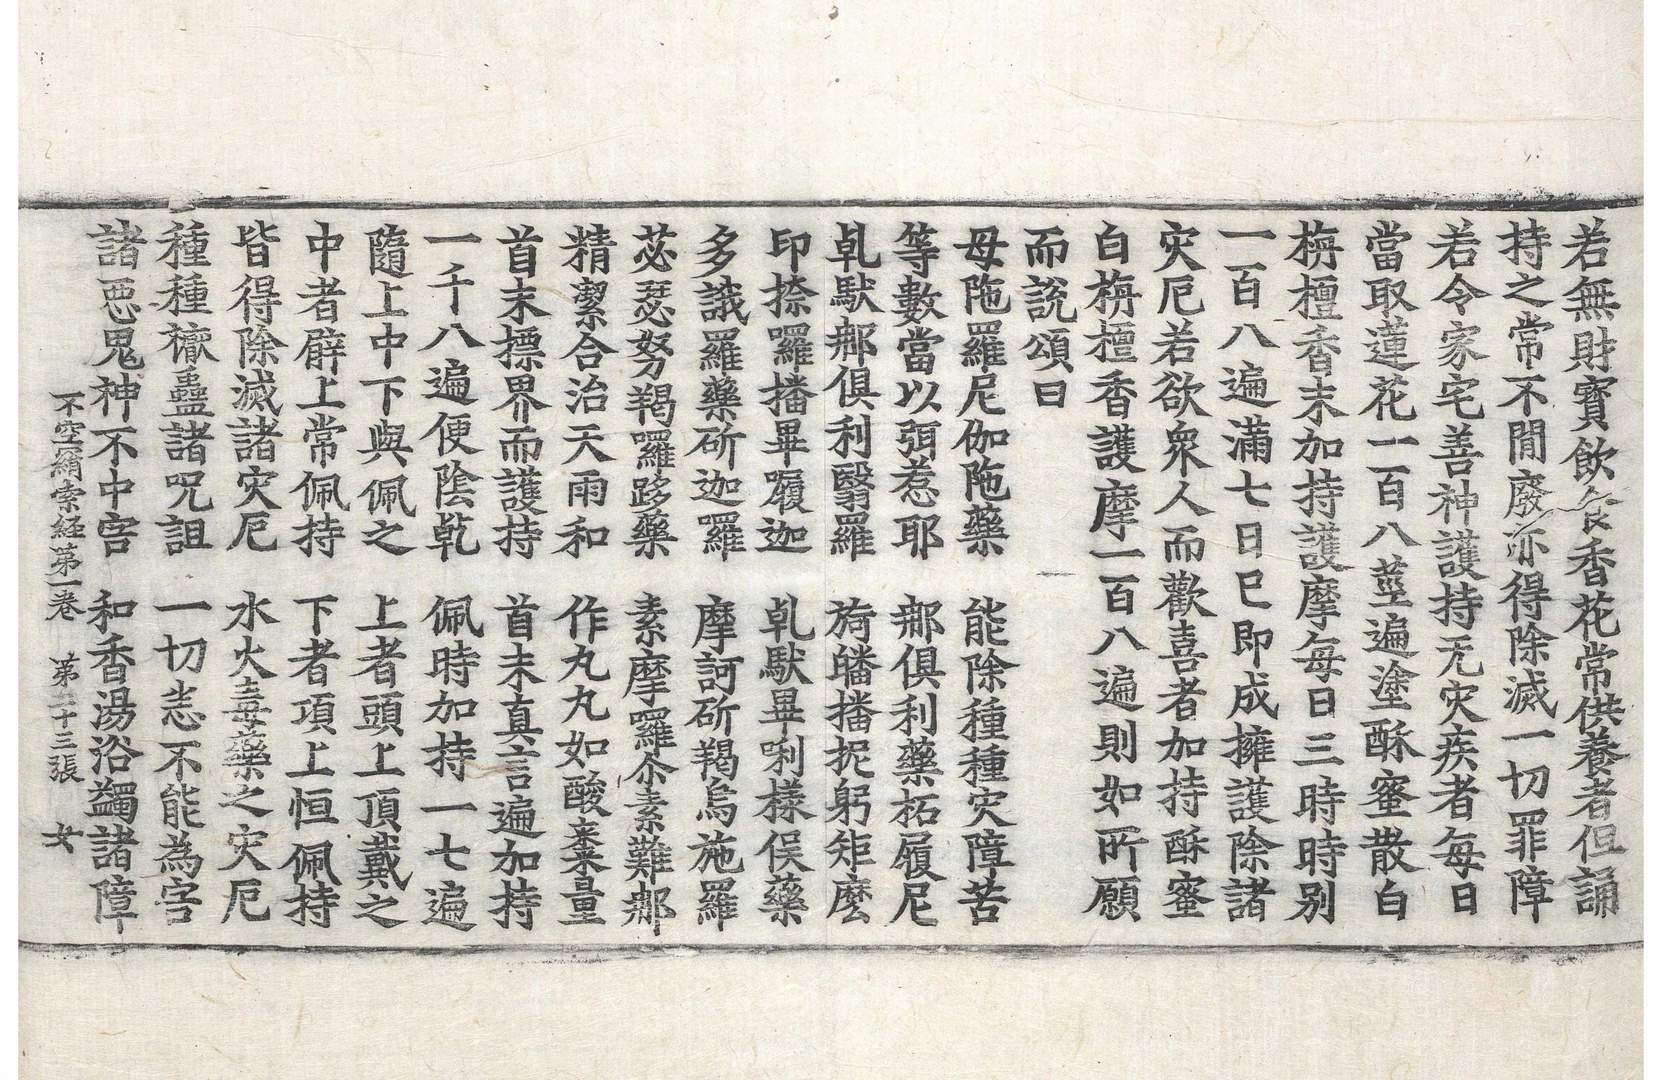 若無財寶飲食香花常供養者但誦
持之常不閒廢亦得除滅一切罪障
若令家宅善神護持无灾疾者每日
當取蓮花一百八莖遍塗酥蜜散白
栴檀香末加持護摩每日三時時别
一百八遍滿七日已即成擁護除諸
灾厄若欲衆人而歡喜者加持酥蜜
白栴檀香護摩一百八遍則如所願
而說頌曰
母陁羅尼伽陁藥　能除種種灾障苦
等數當以弭惹耶　䣕俱利藥柘履尼
乹馱䣕俱利翳羅　旖皤播抳躬矩麽
印捺囉播畢履迦　乹馱畢唎樣俁藥
多誐羅藥斫迦囉　摩訶斫羯烏施羅
苾瑟努羯囉跢藥　素摩囉尒素難䣕
精潔合治天雨和　作丸丸如酸棗量
首末摽界而護持　首末真言遍加持
一千八遍便陰乾　佩時加持一七遍
隨上中下與佩之　上者頭上頂戴之
中者臂上常佩持　下者項上恒佩持
皆得除滅諸灾厄　水火毒藥之灾厄
種種襒蠱諸呪詛　一切恙不能為害
諸惡鬼神不中害　和香湯浴蠲諸障
不空羂索経第一卷　第二十三張　女